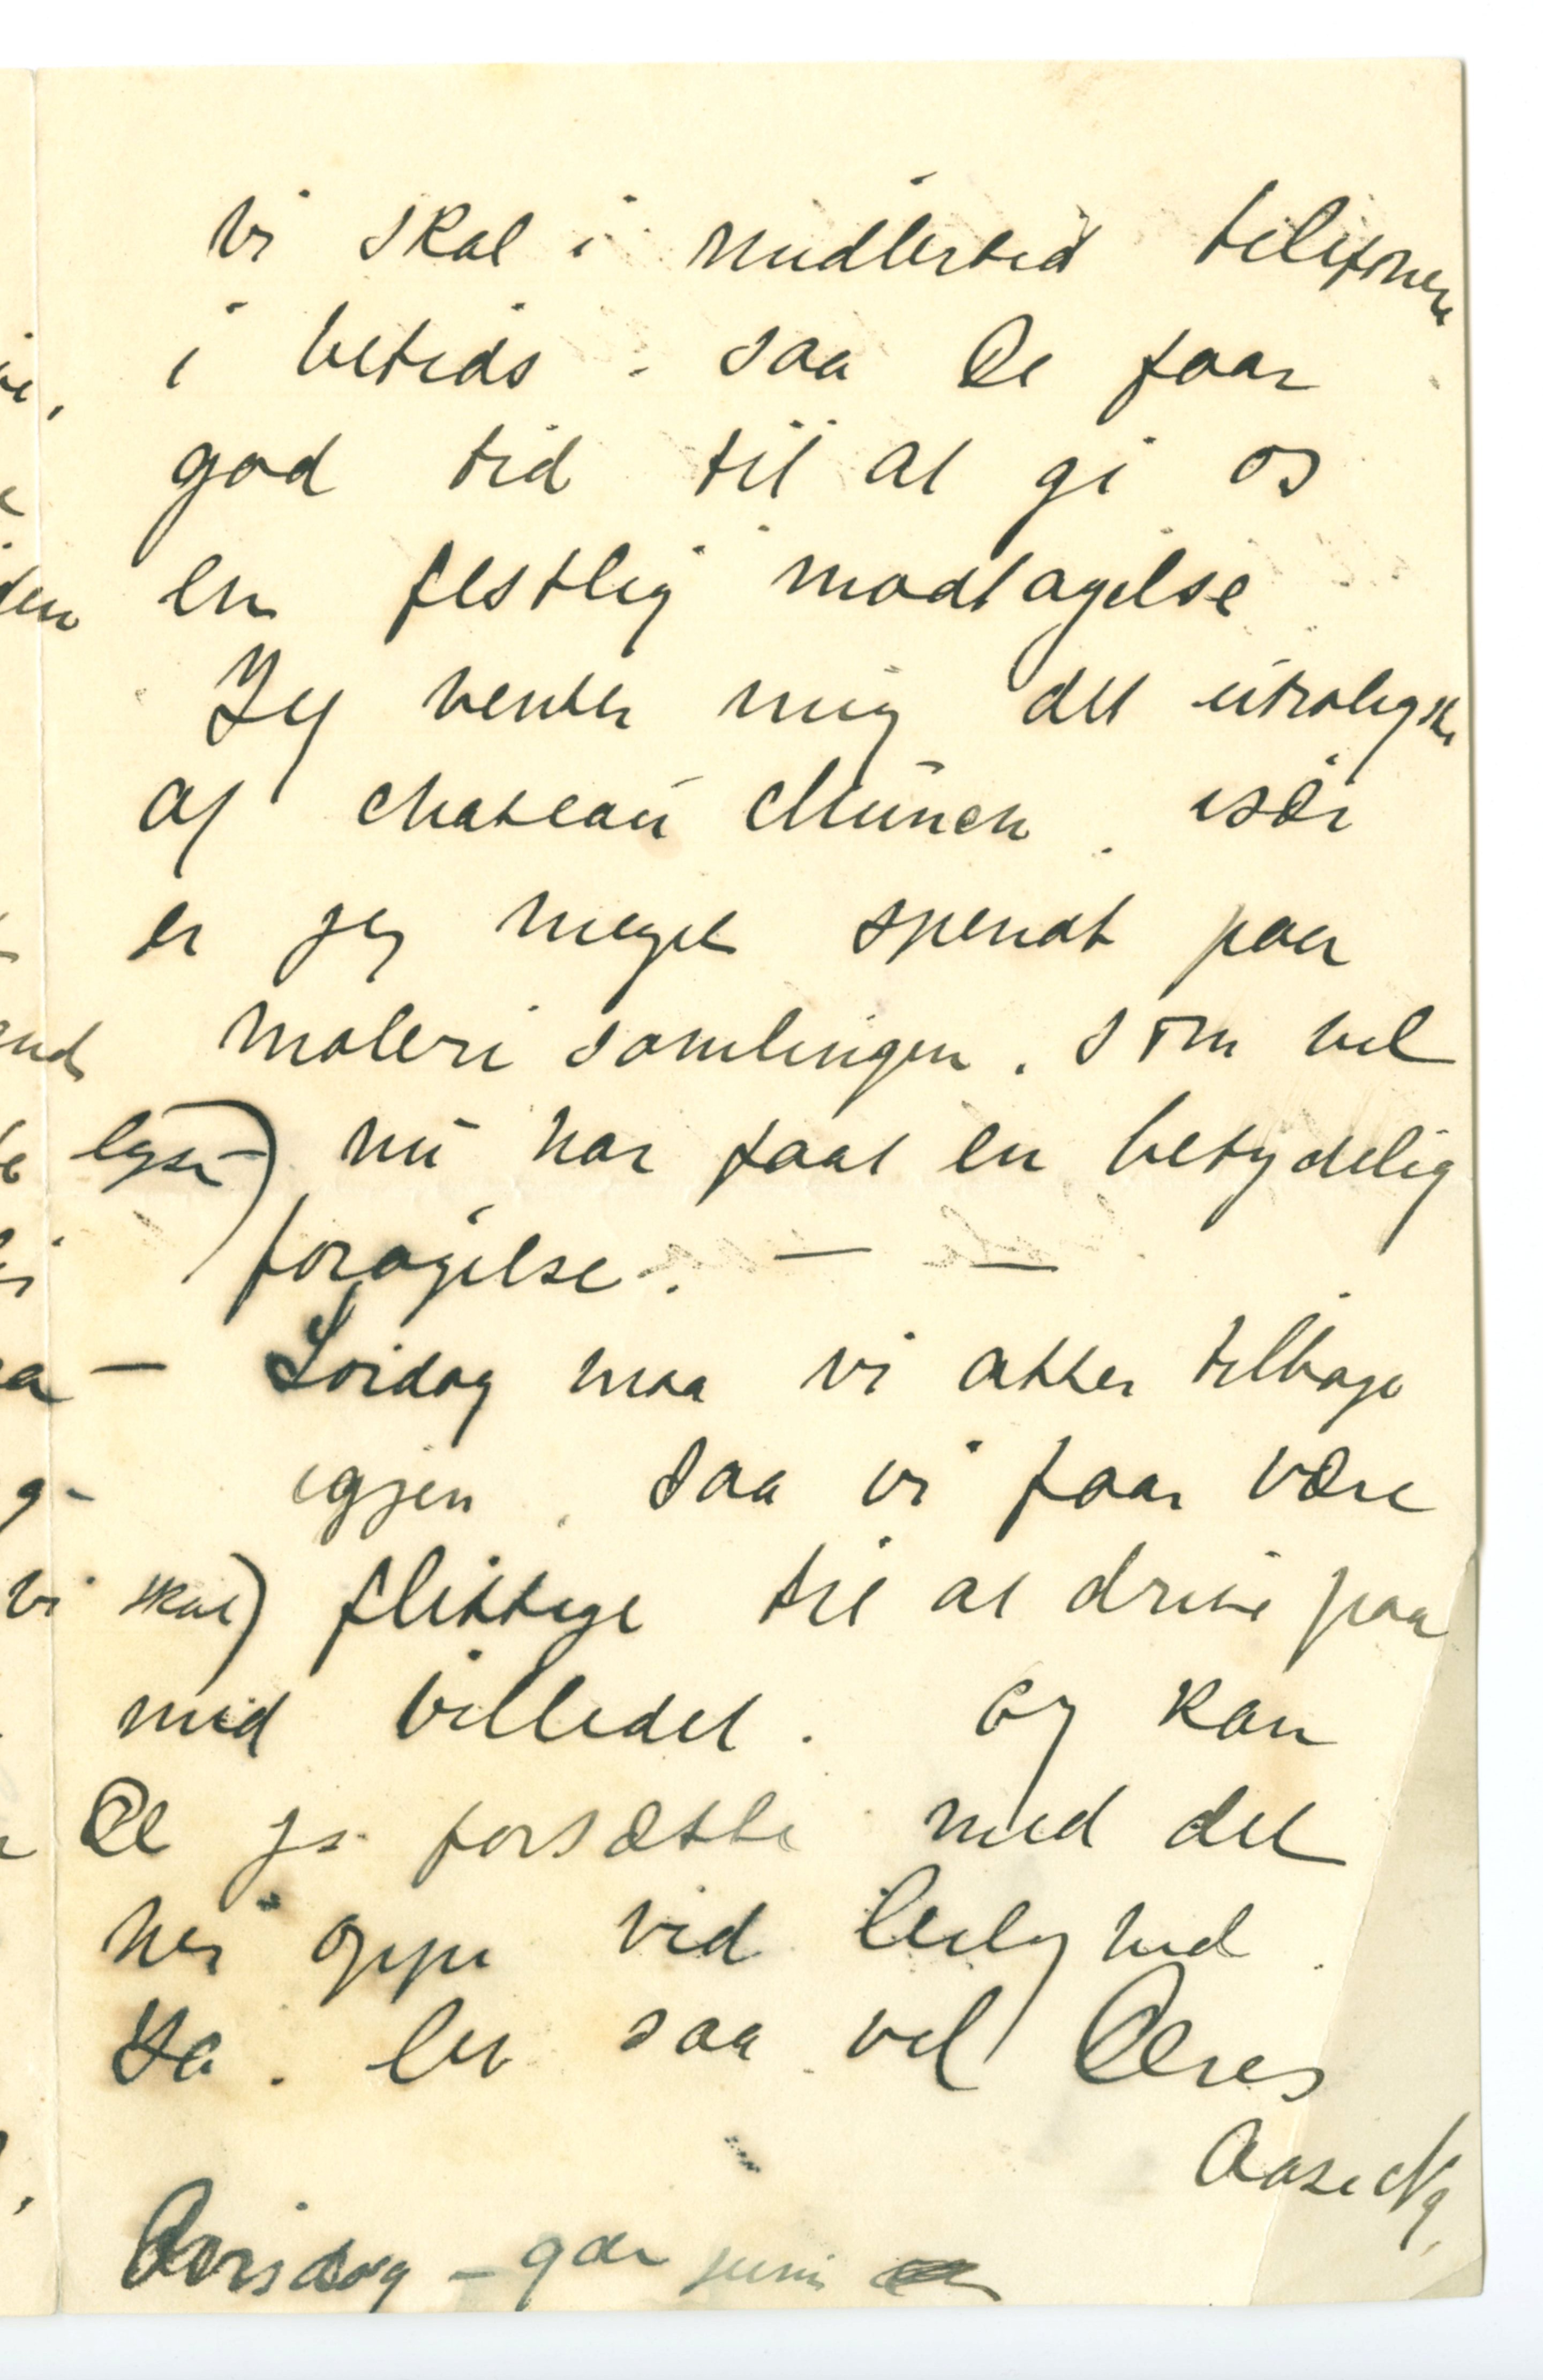 vi skal i midlertid telefonere
i betids. saa De faar
god tid til at gi os
en festlig modtagelse
Jeg venter mig det utroligste
af chateau Münch. især
er jeg meget spendt paa
maleri samlingen. som vel
nu har faat en betydelig
forøgelse. — —
— Loidag maa vi atter tilbage
igjen. saa vi faar være
skal) flittige til at drive paa
med billedet. og kan
De jo forsætte med det
her oppe ved leilighed.
Ja. lev saa vel Deres
Aase N
Onsdag – 9de juni